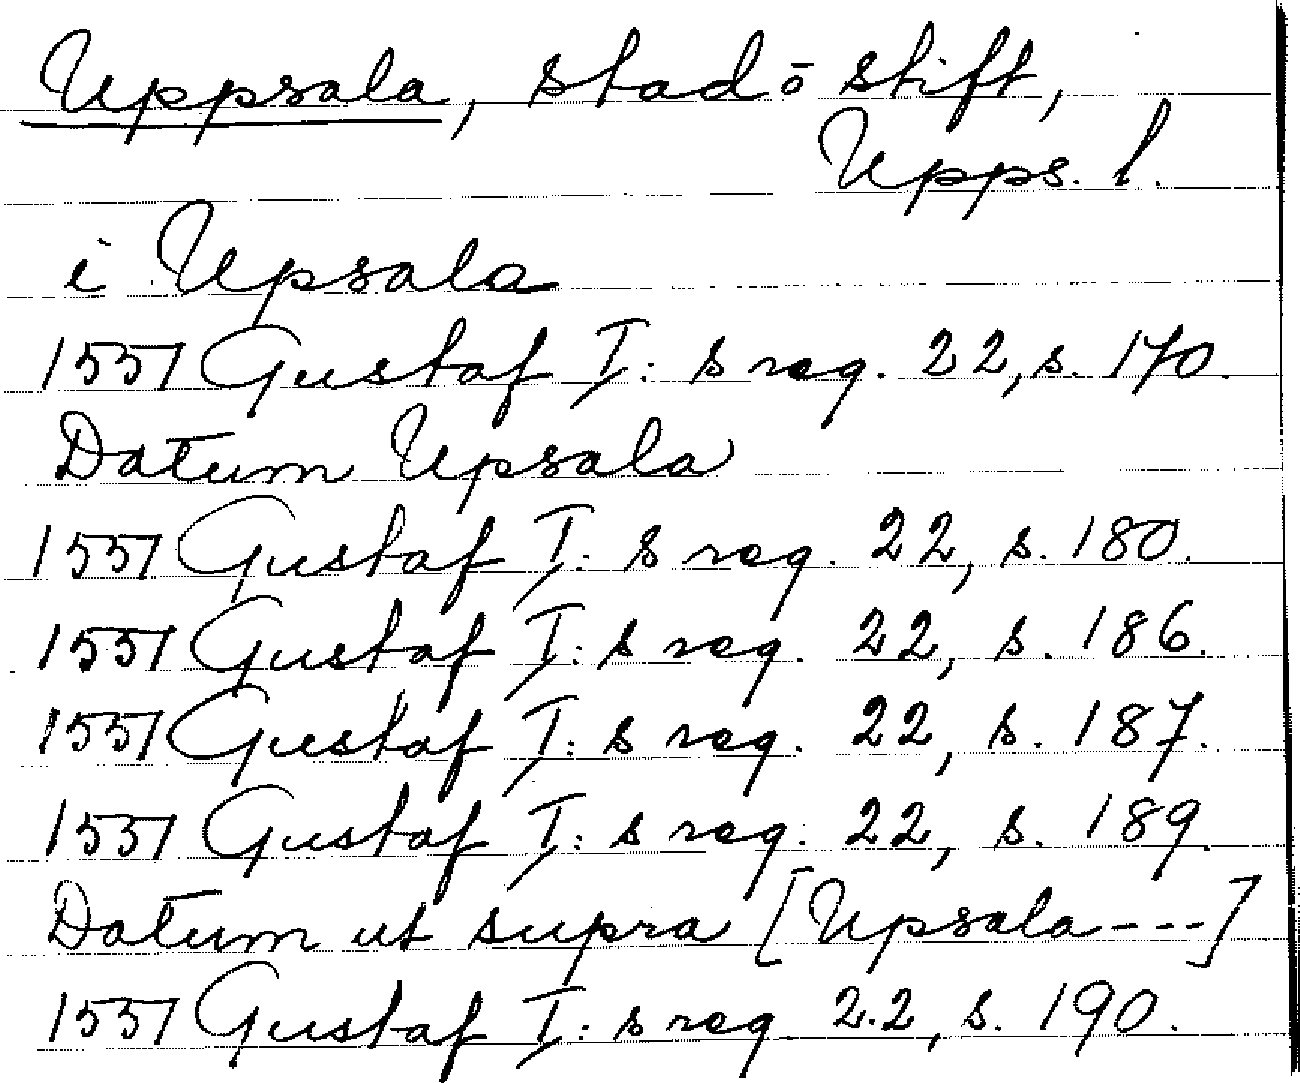 Uppsala, stad ō stift,
Upps. l.
i Upsala
1551 Gustaf I:s reg. 22, s. 170.
Datum Upsala
1551 Gustaf I:s reg. 22, s. 180.
1551 Gustaf I:s reg. 22, s. 186.
1551 Gustaf I:s reg. 22, s. 187.
1551 Gustaf I:s reg. 22, s. 189.
Datum ut supra [Upsala---]
1551 Gustaf I:s reg 22, s. 190.